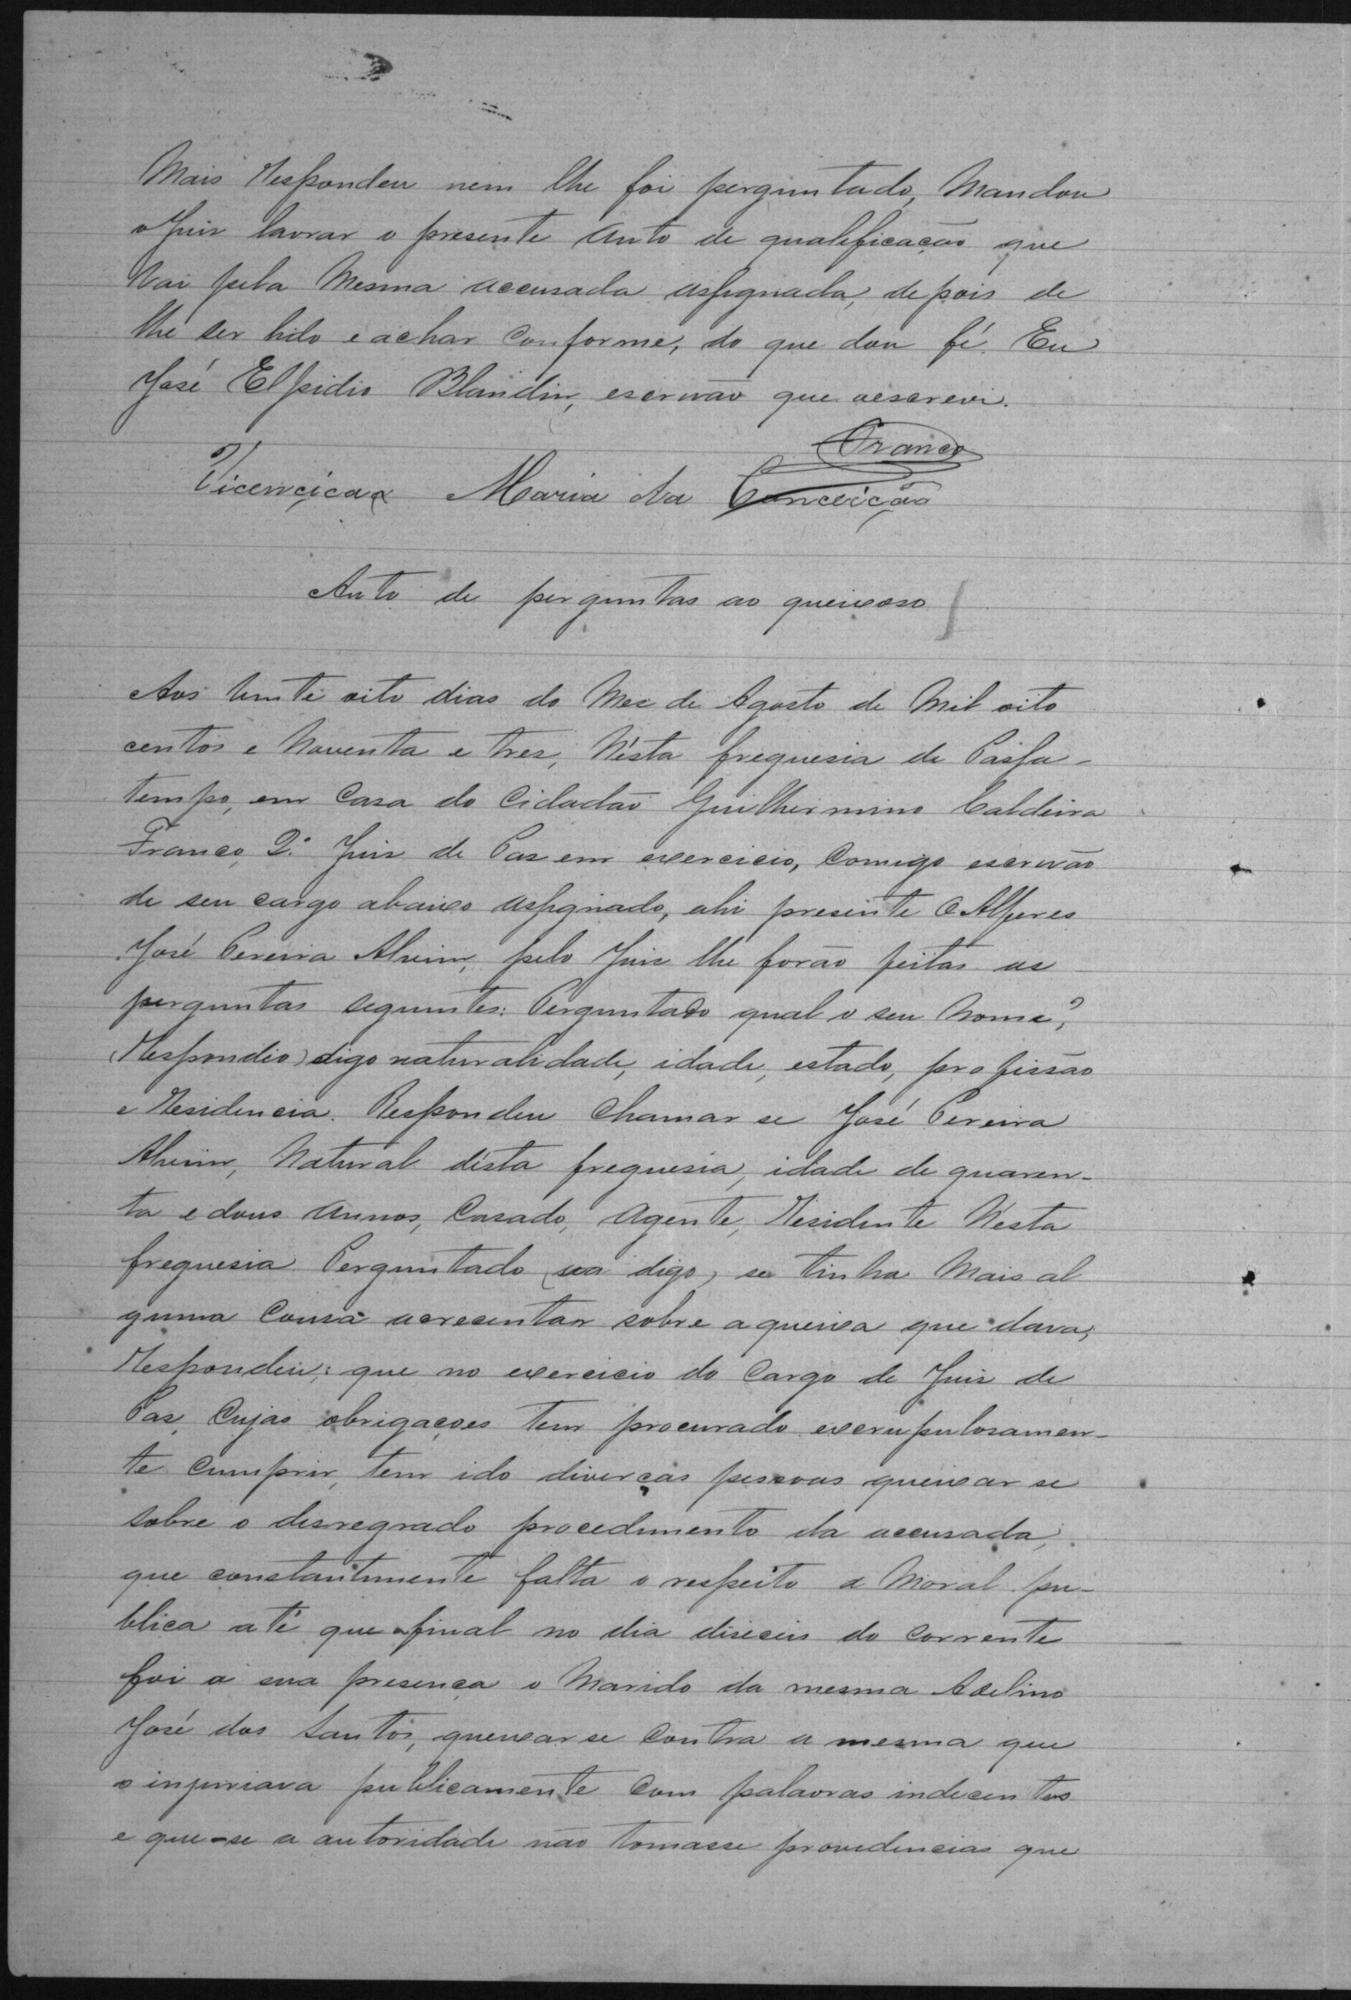 Mais Respondeu nem lhe foi perguntado, Mandou
o Juis lavrar o presente Auto de qualificação que
vai pela Mesma accusada assignada, depois de
lhe ser lido e achar conforme, do que dou fé. Eu
José Elpidio Blandin, escrivão que aescrevi.
Franco
Vicencica Maria da Conceição
Auto de perguntas ao queixoso
Aos vinte oito dias do Mez de Agosto de Mil oito
centos e Noventa e tres, N'esta freguesia de Passa-
tempo, em Casa do Cidadão Guilhermino Caldeira
Franco 2º Juis de Pas em exercicio, Comigo escrivão
de seu cargo abaixo assignado, ahi presente o Alferes
José Pereira Alvim, pelo Juis lhe forão feitas as
perguntas seguintes: Perguntado qual o seu Nome?,
(Respondio) digo naturalidade, idade, estado, profissão
e Residencia. Respondeu Chamar se José Pereira
Alvim, Natural desta freguesia, idade de quaren-
ta e dous Annos, Casado, Agente, Residente N'esta
freguesia Perguntado (sua digo) se tinha Mais al
guma Cousa acresentar sobre a queixa que dava,
Respondeu: que no exercicio do Cargo de Juis de
Pas, Cujas obrigações tem procurado excrupulosamen-
te Cumprir, tem ido divercas pessoas queixar se
sobre o desregrado procedimento da accusada,
que constantimente falta o respeito a Moral pu-
blica até que afinal no dia diseceis do Corrente
foi a sua presença o Marido da mesma Adelino
José dos Santos, queixar se Contra a mesma que
o injuriava publicamente Com palavras indecentes
e que se a autoridade não tomasse providencias que